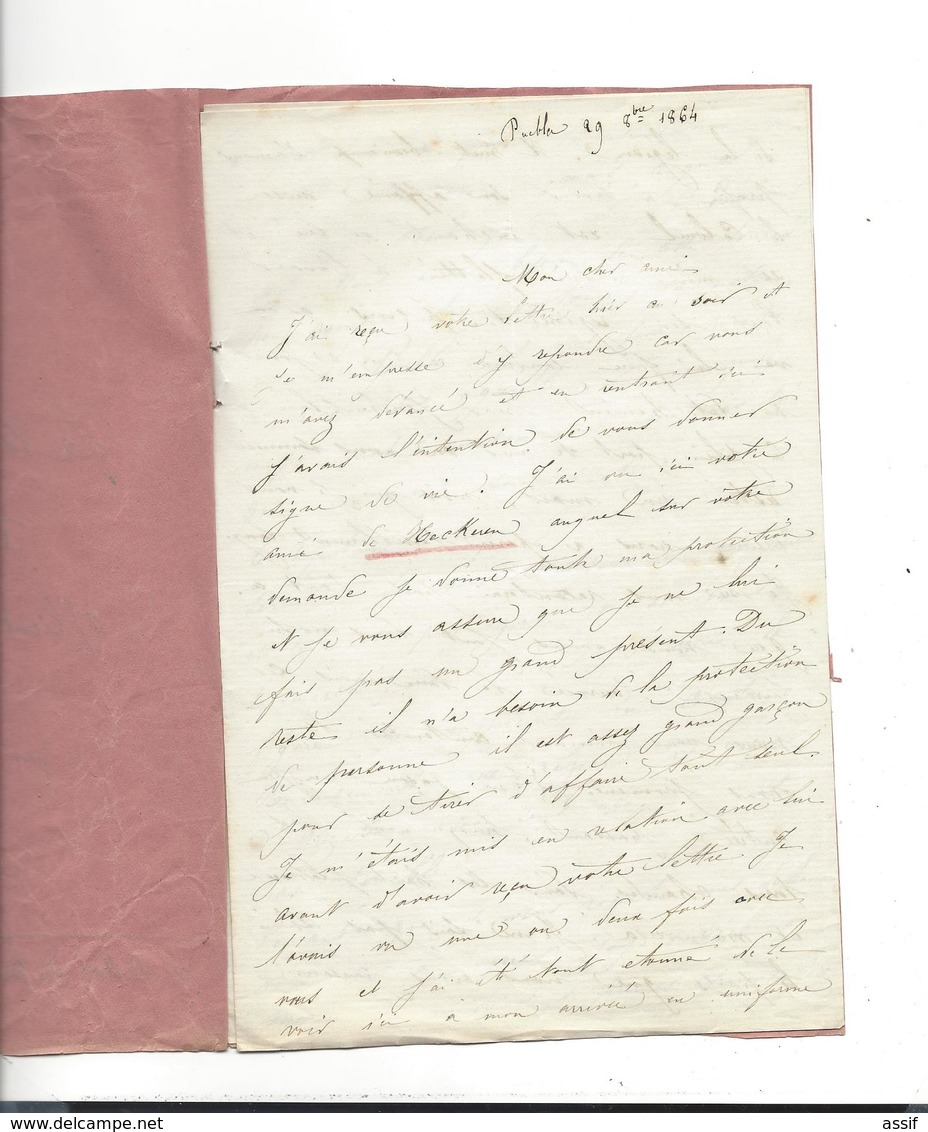 Puebla 29 8bre 1864
Mon cher ami
J'ai reçu votre lettre hier au soir et
je m'empresse d'y repondre car vous
m'avez dévancé et en rentrant ici
j'avais l'intention de vous donner
signe de vie. J'ai vu ici votre
ami de Heckeren auquel sur votre
demande je donne toute ma protection
et je vous assure que je ne lui
fais pas un grand présent. Du
reste il n'a besoin de la protection
de personne il est assez grand garçon
pour se tirer d'affaire tout seul.
Je m'étais mis en relation avec lui
avant d'avoir reçu votre lettre. Je
l'avais vu une ou deux fois avec
vous et j'ai été tout étonné de le
voir ici à mon arrivée en uniforme
www.delcampe.net
assif